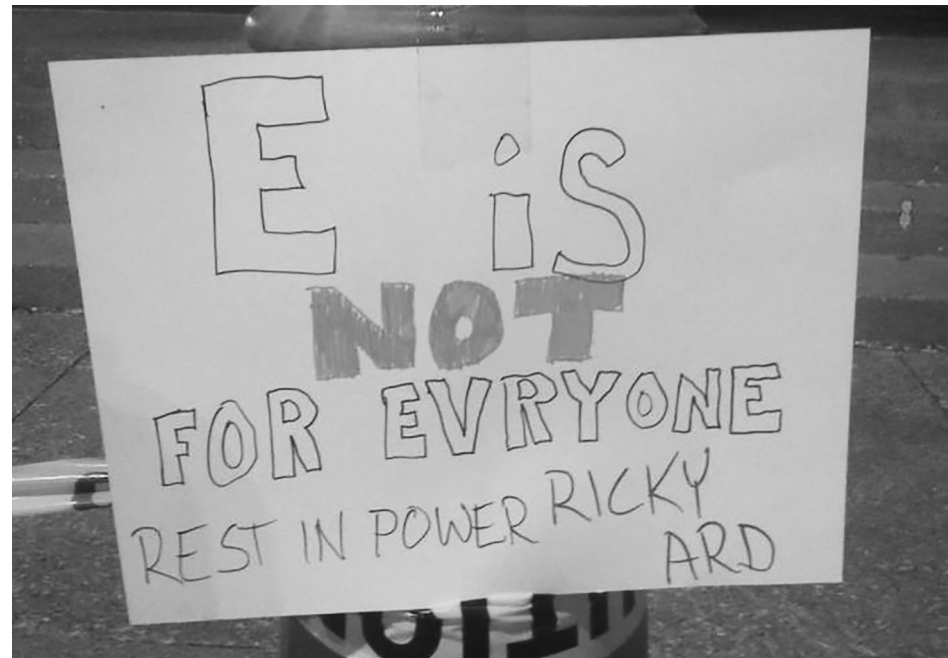 E is
NOT
FOR EVRYONE
REST IN POWER RICKY
ARD